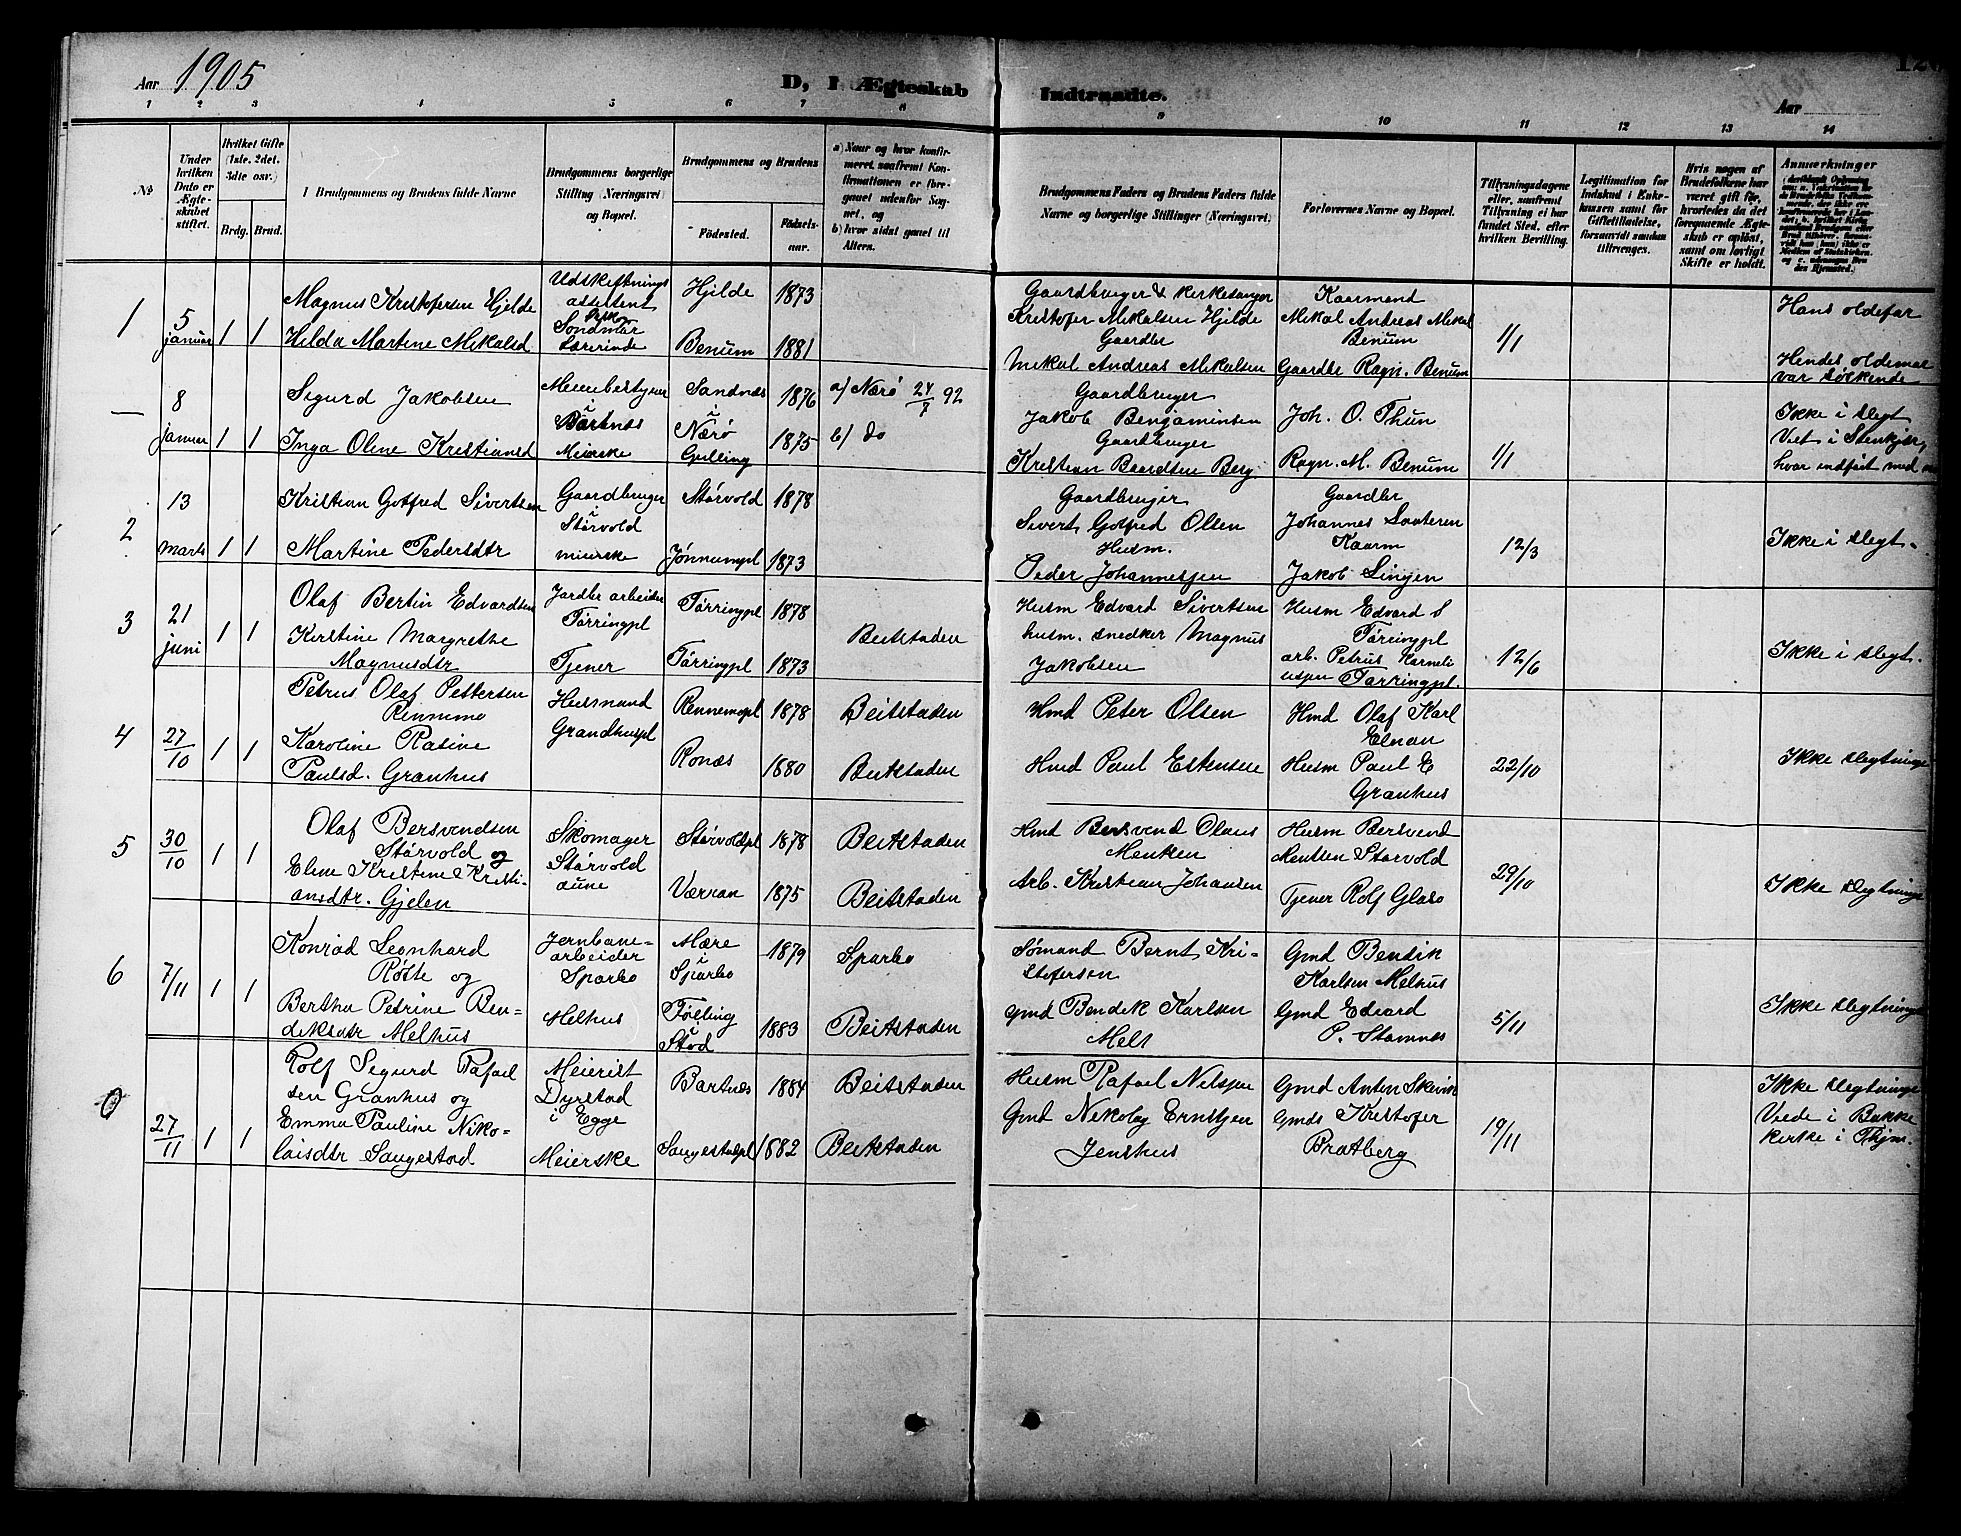 Aar 1905
D, I Ægteskab Indtraadte.
Aar
1 2 3 4 5 6 7 8 9 10 11 12 13 14
№
Under hvilken Dato er Ægteskabet stiftet.
Hvilket Gifte (1ste, 2det, 3die osv.)
Brdg. Brud.
Brudgommens og Brudens fulde Navne
Brudgommens borgerlige Stilling (Næringsvei) og Bopæl.
Brudgommens og Brudens
Födested. Födselsaar.
a) Naar og hvor konfirmeret, saafremt Konfirmationen er foregaaet udenfor Sognet, og
b) hvor sidst gaaet til Alters.
Brudgommens Faders og Brudens Faders fulde Navne og borgerlige Stillinger (Næringsvei)
Forlovernes Navne og Bopæl.
Tillysningsdagene eller, saafremt Tillysning ei har fundet Sted, efter hvilken Bevilling.
Legitimation for Indskud i Enkekassen samt for Giftetilladelse, forsaavidt saadan tiltrænges.
Hvis nogen af Brudefolkene har været gift för, hvorledes da det foregaaende Ægteskab er oplöst, samt om lovligt Skifte er holdt.
Anmærkninger
1
5 januar
1 1
Magnus Kristofersen Hjelde
Hilda Martine Mikalsd
Udskiftnings
assistent
Søndmør
Lærerinde
Hjilde 1873
Benum 1881
Gaardbruger & kirkesanger
Kristofer Mikalsen Hjelde
Gaardbr
Mikal Andreas Mikalsen
Kaarmand
Mikal Andreas Mikal
Benum
Gaardbr Ragn. Benum
1/1
Hans oldefar
Hendes oldemor
var søskende
—
8 januar
1 1
Sigurd Jakobsen
Inga Oline Kristiansd
Meieribestyrer
i
Bartnes
Meierske
Sandnes 1876
i
Nærö 1875
Gulling
a) Nærö 24/7 92
b) do
Gaardbruger
Jakob Benjaminsen
Gaardbruger
Kristian Baardsen Berg
Joh. O. Thun
Ragn. M. Benum
1/1
Ikke i slegt
Viet i Stenkjær,
hvor indført med
2
13 marts
1 1
Kristian Gotfred Sivertsen
Martine Pedersdtr
Gaardbruger
i
Størvold
meierske
Størvold 1878
Jönnumpl 1873
Gaardbruger
Sivert Gotfred Olsen
Husm.
Peder Johannesjen
Gaardbr
Johannes
Kaarm
Jakob Lingen
12/3
Ikke i slegt.
3
21 juni
1 1
Olaf Bertin Edvardsen
Kirstine Margrethe
Magnusdtr
Jordbr arbeider
Tørringpl
Tjener
Tørringpl 1878
Tørringpl 1873
Beitstaden
Husm Edvard Sivertsen
husm. snedker Magnus
Jakobsen
Husm Edvard S
Tørringpl
arb. Petrus Korneli
ussen Tørringpl.
12/6
Ikke i slegt.
4
27/10
1 1
Petrus Olaf Pettersen
Rennemo
Karoline Rasine
Paulsd. Granhus
Husmand
Grandhuspl
Rennemopl 1878
Ronæs 1880
Beitstaden
Beitstaden
Hmd Peter Olsen
Hmd Paul Estensen
Hmd Olaf Karl
Elnan
Husm Paul E
Granhus
22/10
Ikke slegtninge
5
30/10
1 1
Olaf Bersvendsen
Størvold og
Eline Kristine Kristi-
ansdtr. Gjelen
Skomager
Størvold
aune
Størvoldpl 1878
Værran 1875
Beitstaden
Beitstaden
Hmd Bersvend Olaus
Mentsen
Arb. Kristian Johansen
Husm Bersvend
Mentsen Størvold
Tjener Rolf Glasø
29/10
Ikke slegtninge
6
7/11
1 1
Konrad Leonhard
Rölte og
Bertha Petrine Ben-
diksdtr Melhus
Jernbane-
arbeider
Sparbo
Melhus
Mære 1879
i
Sparbo
Følling 1883
i
Stod
Sparbo
Beitstaden
Sømand Bernt Kri-
stofersen
Gmd Bendik Karlsen
Melh
Gmd Bendik
Karlsen Melhus
Gmd Edvard
P. Stamnes
5/11
Ikke slegtninge
0
27/11
1 1
Rolf Sigurd Rafael
sen Granhus og
Emma Pauline Niko-
laisdtr Saugestad
Meierist
Dyrstad
i Egge
Meierske
Bartnes 1884
Saugestadpl 1882
Beitstaden
Beitstaden
Husm Rafael Nilsjen
Gmd Nikolay Ernstjen
Jenshus
Gmd Anton
Gmds Kristofer
Bratberg
19/11
Ikke slegtninge
Viede i Bakke
kirke i Thjm.